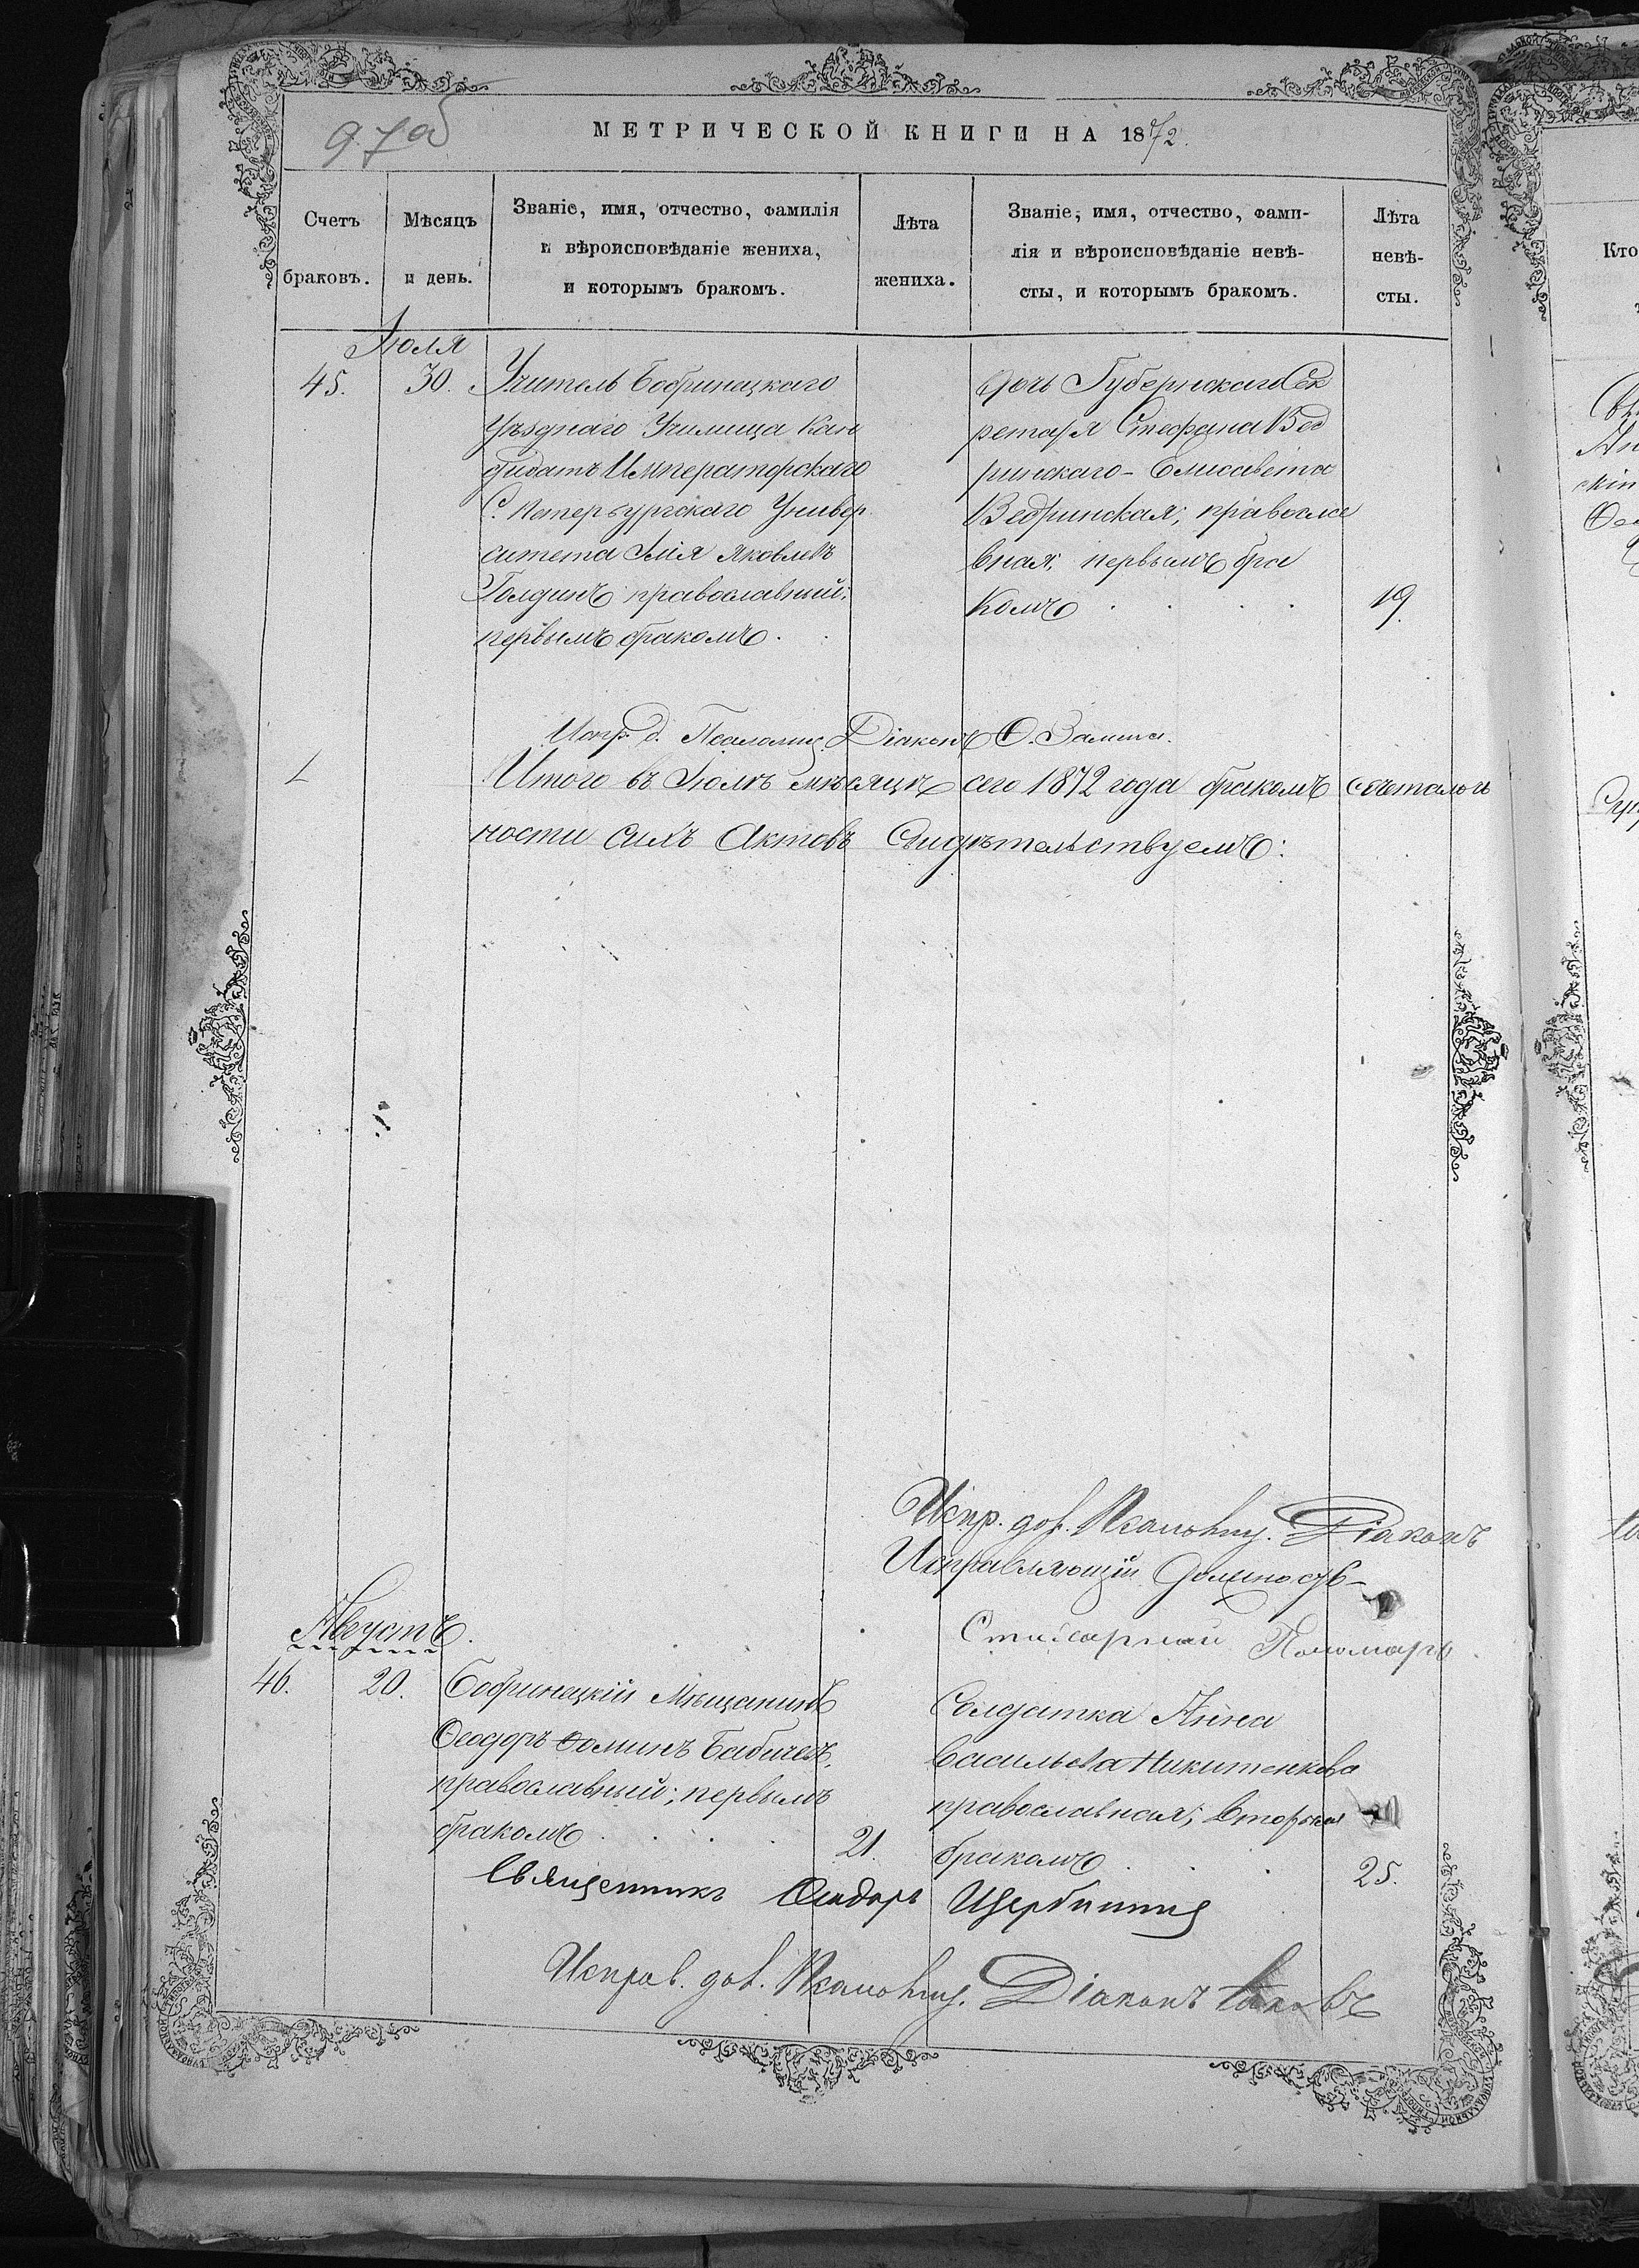 97 об
МЕТРИЧЕСКОЙ КНИГИ НА 1872.
Счетъ браковъ.
Мѣсяцъ и день.
Званіе, имя, отчество, фамилія
и вѣроисповѣданіе жениха,
и которымъ бракомъ.
Лѣта жениха.
Званіе, имя, отчество, фами-
лія и вѣроисповѣданіе невѣ-
сты, и которымъ бракомъ.
Лѣта невѣ-
сты.
Іюля
45. 30.
Учитель Бобринецкаго
Уѣзднаго Училища Кан
дидатъ Императорскаго
С. Петербургскаго Универ
ситета Илія Яковлевъ
Голдинъ православный;
первымъ бракомъ.
Дочь Губернскаго Сек
ретаря Стефана Вед
ринскаго - Елисавета
Ведринская; правосла
вная; первымъ бра
комъ 19.
Испр. д. Псаломщ. Діаконъ
Итого въ Іюлѣ мѣсяцѣ сего 1872 года бракомъ сочетал
ности сихъ Актовъ свидѣтельствуемъ:
Испр. дол. Псаломщ. Діаконъ
Исправляющій Должность
Пономарь
Августъ.
46. 20.
Бобринецкій Мѣщанинъ
Ѳеодоръ Ѳоминъ Бабичевъ,
православный; первымъ
бракомъ 21.
Солдатка Анна
Васильева Никитенкова
православная; вторымъ
бракомъ 25.
Священникъ Ѳеодоръ Щербина
Исправ. дол. Псаломщ. Діаконъ
Кто